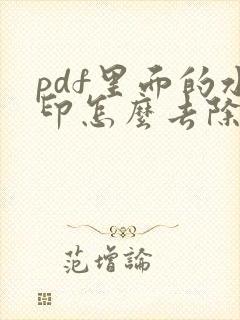 pdf里面的水
印怎麼去除
范增論